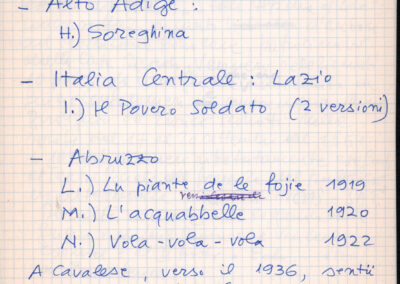 - Alto Adige :
H.) Soreghina
- Italia Centrale : Lazio
I.) Il Povero Soldato (2 versioni)
- Abruzzo
L.) Lu piante de le fojie 1919
M.) L'acquabbelle 1920
N.) Vola-vola-vola 1922
A Cavalese, verso il 1936, sentii